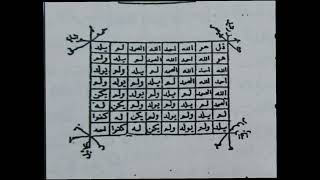 قل هو الله احد الله الصمد لم يلد
هو الله احد الله الصمد لم يلد ولم
الله احد الله الصمد لم يلد ولم يولد
احد الله الصمد لم يلد ولم يولد ولم
الله الصمد لم يلد ولم يولد ولم يكن
الصمد لم يلد ولم يولد ولم يكن له
لم يلد ولم يولد ولم يكن له كفوا
يلد ولم يولد ولم يكن له كفوا احد